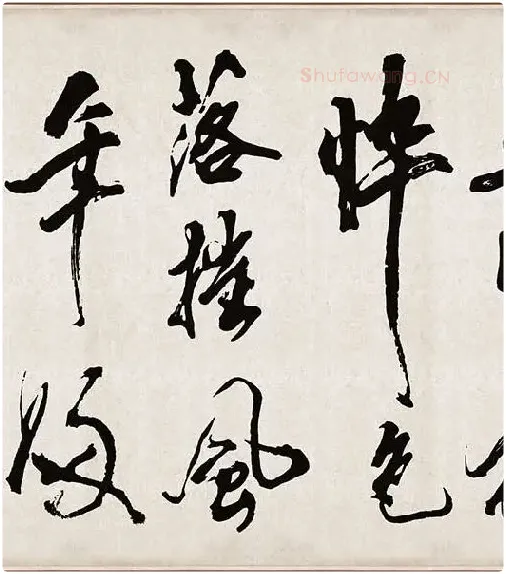 Shufawang.CN
悴色
落摧風
年